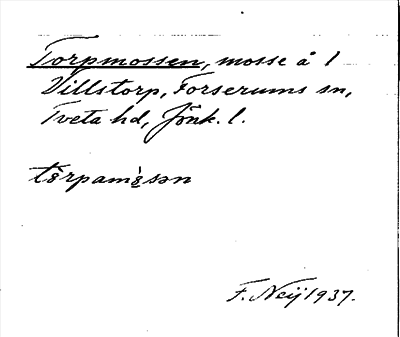 Torpmossen, mosse å 1
Villstorp, Forserums sn,
Tveta hd, Jönk. l.
F. Neij 1937.